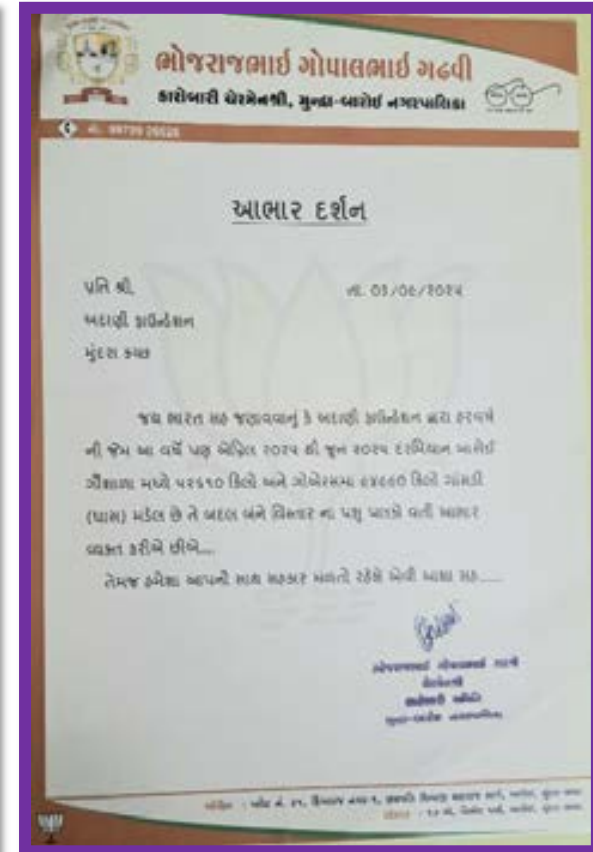 ભોજરાજભાઈ ગોપાલભાઈ ગઢવી
કારોબારી ચેરમેનશ્રી, મુન્દ્રા-બારોઈ નગરપાલિકા
આભાર દર્શન
પ્રતિ શ્રી,
તા. 03/0૯/૨૦૨૫
અદાણી ફાઉન્ડેશન
મુંદરા કચ્છ
જય ભારત સહ જણાવવાનું કે અદાણી ફાઉન્ડેશન દ્વારા દરવર્ષે
ની જેમ આ વર્ષે પણ એપ્રિલ ૨૦૨૫ થી જૂન ૨૦૨૫ દરમિયાન બારોઈ
ગૌશાળા મધ્યે ૫૨૬૧૦ કિલો અને ગોએરસમા કિલો ગાંસડી
(ઘાસ) મડેલ છે તે બદલ બંને વિસ્તાર ના પશુ પાલકો વતી આભાર
વ્યક્ત કરીએ છીએ....
તેમજ હંમેશા આપનો સાથ સહકાર મળતો રહેશે એવી આશા સહ.....
ભોજરાજભાઈ ગોપાલભાઈ ગઢવી
ચેરમેનશ્રી
કારોબારી સમિતિ
મુન્દ્રા-બારોઈ નગરપાલિકા